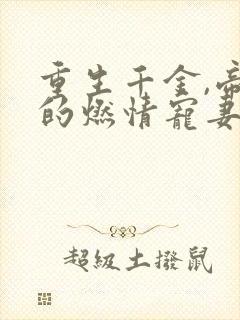 重生千金,帝
的燃情宠妻
超级土拨鼠